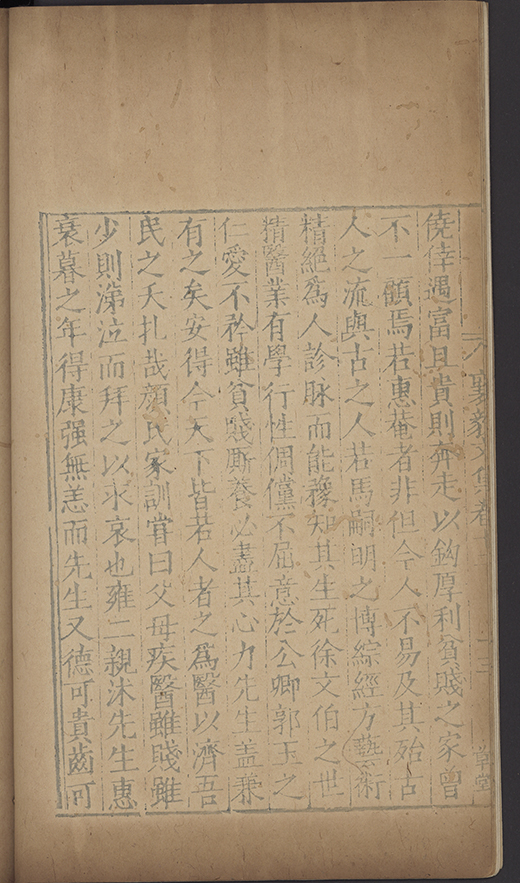 僥倖遇富且貴則奔走以鈎厚利貧賤之家曾
不一顧焉若惠菴者非但今人不易及其殆古
人之流與古之人若馬嗣明之博綜經方藝術
精絕爲人診脉而能豫知其生死徐文伯之世
精醫業有學行性倜儻不屈意於公卿郭玉之
仁愛不矜雖貧賤厮養必盡其心力先生盖兼
有之矣安得今天下皆若人者之爲醫以濟吾
民之夭扎哉顔氏家訓嘗曰父母疾醫雖賤雖
少則涕泣而拜之以求哀也雍二親沐先生惠
衰暮之年得康强無恙而先生又德可貴齒可
襄毅文集卷
草堂